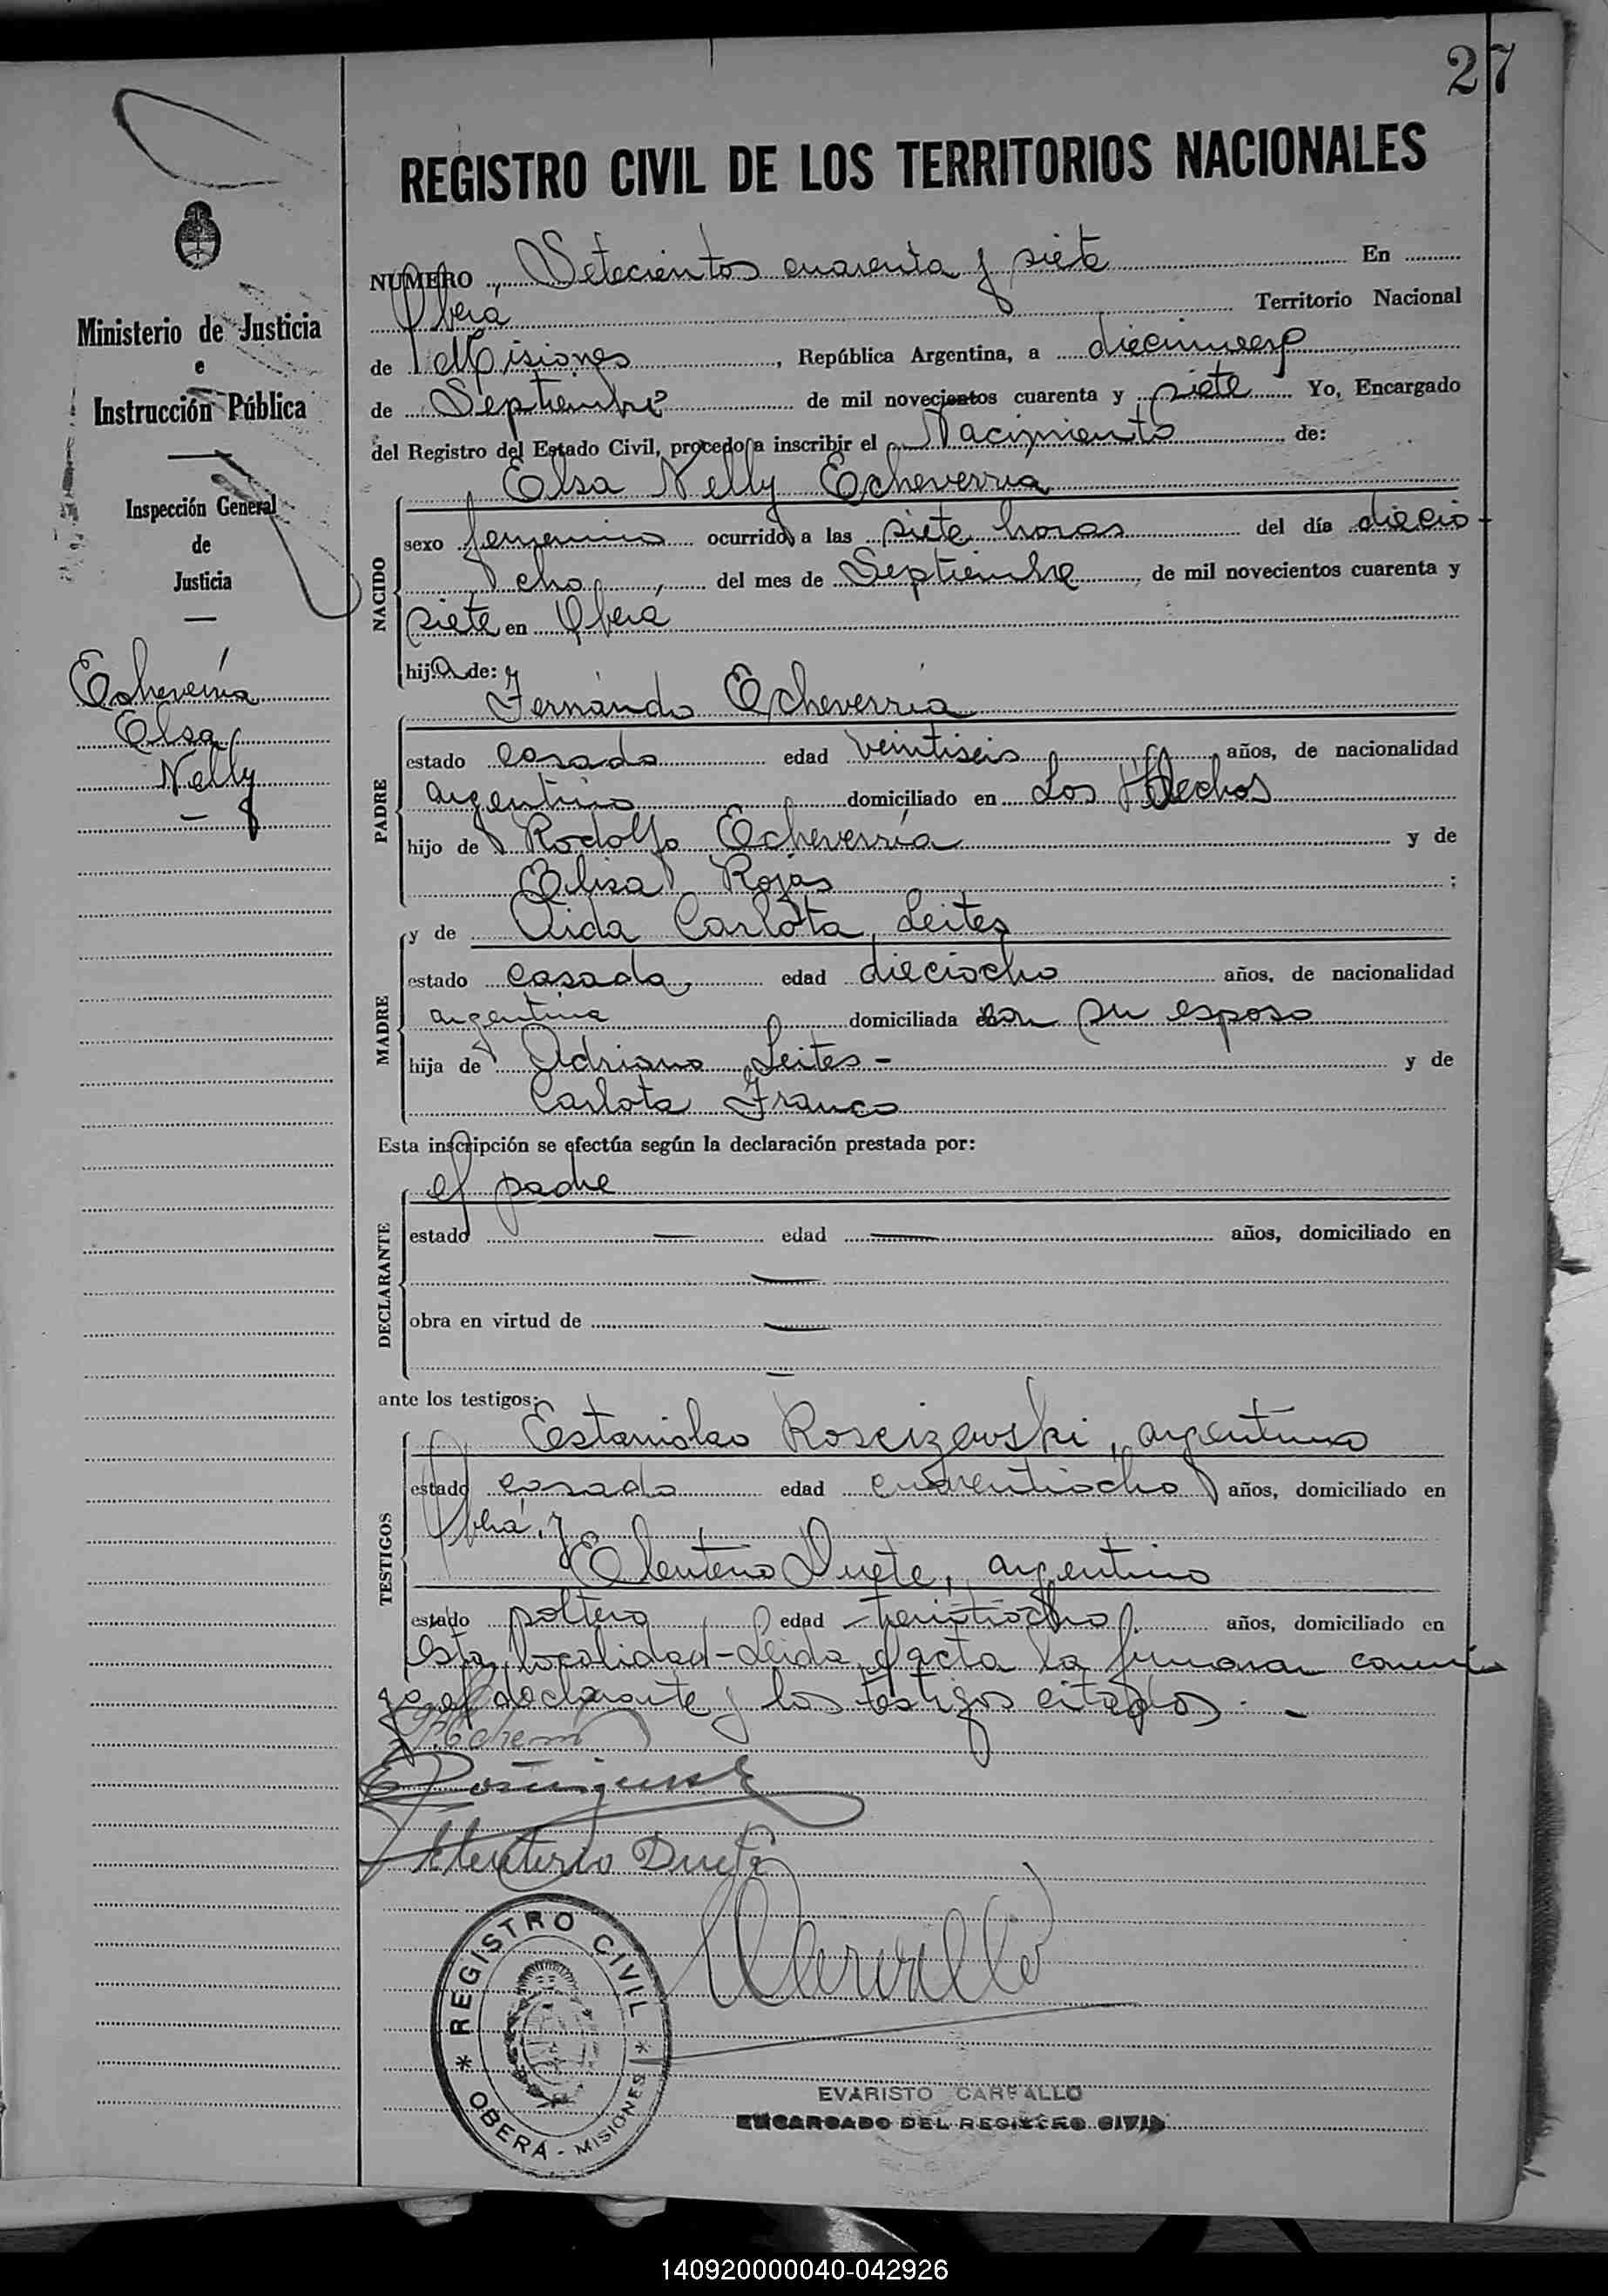 27
REGISTRO CIVIL DE LOS TERRITORIOS NACIONALES
Ministerio de Justicia
e
Instrucción Pública
Inspección General
de
Justicia
Echeverría
Elsa
Nelly
NUMERO Setecientos cuarenta y siete En
Oberá Territorio Nacional
de Misiones, República Argentina, a diecinueve
de Septiembre de mil novecientos cuarenta y siete Yo, Encargado
del Registro del Estado Civil, procedo a inscribir el Nacimiento de:
Elsa Nelly Echeverria
NACIDO
sexo femenino ocurrido a las siete horas del día diecio
cho, del mes de Septiembre, de mil novecientos cuarenta y
siete en Oberá
hija de:
Fernándo Echeverria
PADRE
estado casado edad veintiseis años, de nacionalidad
argentino domiciliado en Los Helechos
hijo de Rodolfo Echeverría y de
Elisa Rojas ;
y de Aida Carlota Leites
MADRE
estado casada, edad dieciocho años, de nacionalidad
argentina domiciliada con su esposo
hija de Adriano Leites - y de
Carlota Franco
Esta inscripción se efectúa según la declaración prestada por:
el padre
DECLARANTE
estado — edad — años, domiciliado en
—
obra en virtud de —
—
ante los testigos:
Estanislao Roscizewski, argentino
TESTIGOS
estado casado edad cuarentiocho años, domiciliado en
Oberá, y
Eleuterio Duete, argentino
estado soltero edad treintiocho años, domiciliado en
esta localidad - Leida el acta la firmaron conmi
go el declarante y los testigos citados. -
Eleuterio Duete
REGISTRO CIVIL
* OBERÁ - MISIONES *
EVARISTO CARFALLO
ENCARGADO DEL REGISTRO CIVIL
140920000040-042926